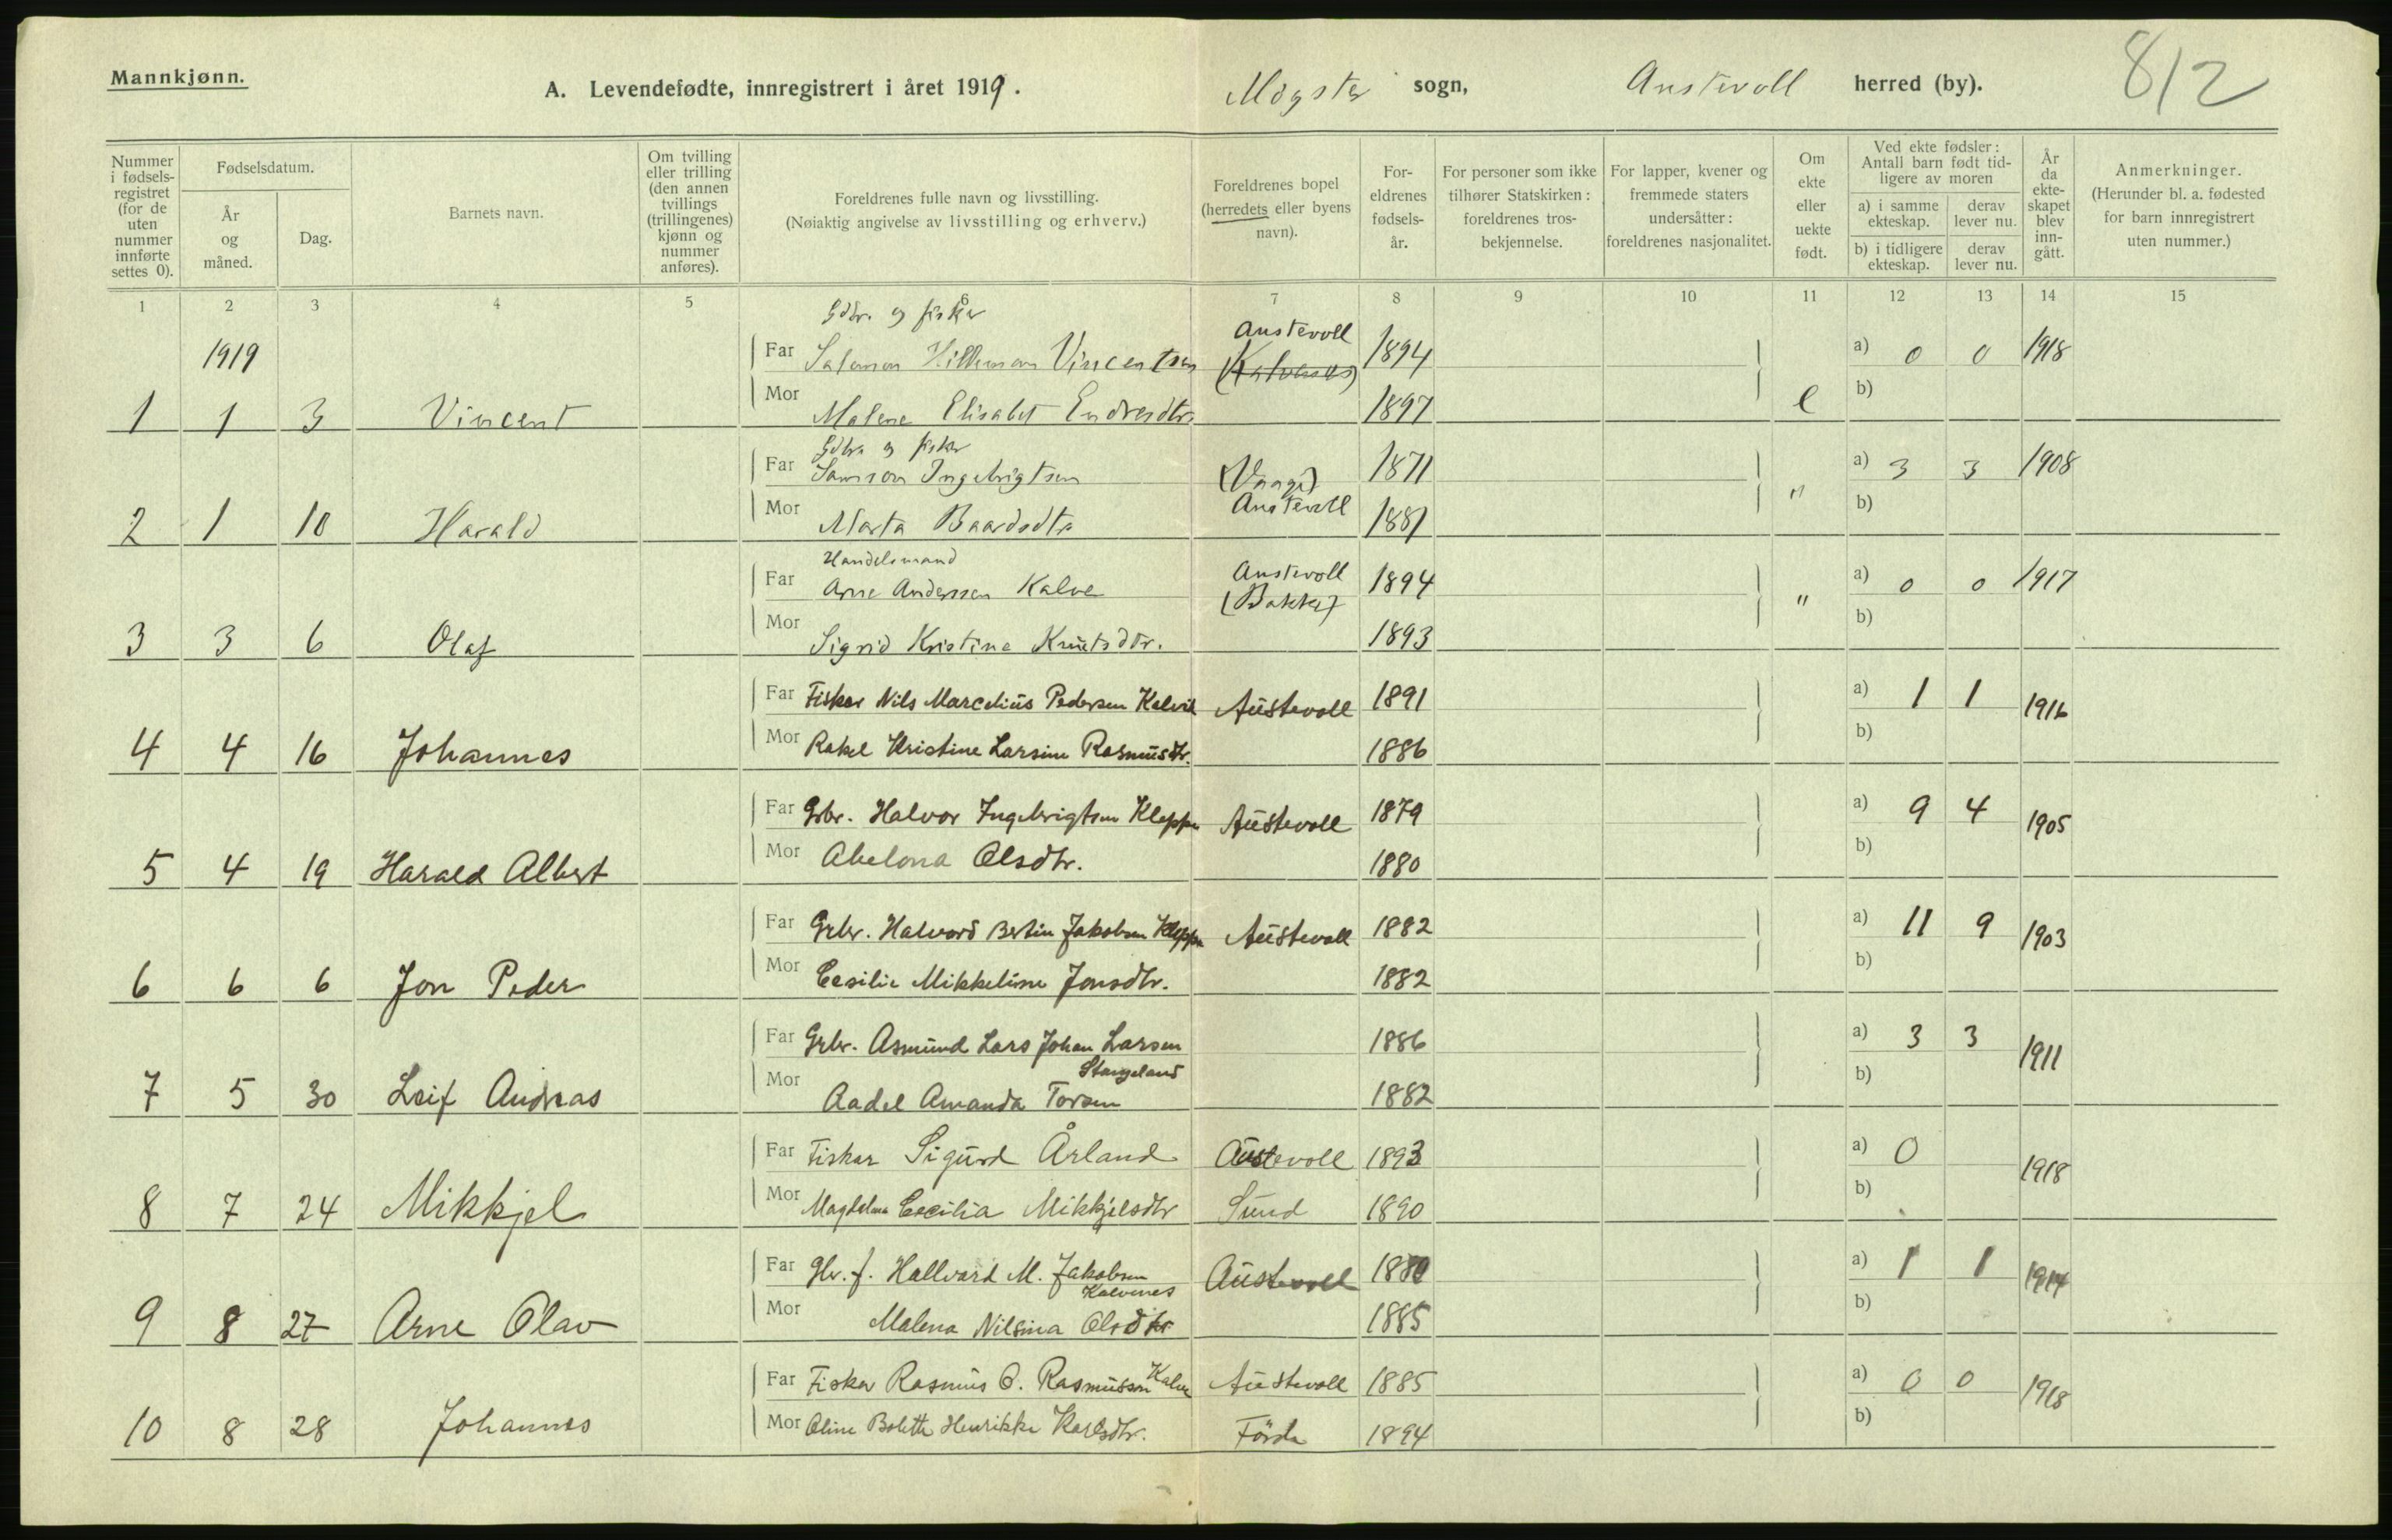 Mannkjønn.
A. Levendefødte, innregistrert i året 1919.
Møgster sogn, Austevoll herred (by).
812
Nummer i fødselsregistret (for de uten nummer innførte settes 0).
Fødselsdatum.
År og måned.
Dag.
Barnets navn.
Om tvilling eller trilling (den annen tvillings (trillingenes) kjønn og nummer anføres).
Foreldrenes fulle navn og livsstilling.
(Nøiaktig angivelse av livsstilling og erhverv.)
Foreldrenes bopel (herredets eller byens navn).
Foreldrenes fødselsår.
For personer som ikke tilhører Statskirken: foreldrenes trosbekjennelse.
For lapper, kvener og fremmede staters undersåtter: foreldrenes nasjonalitet.
Om ekte eller uekte født.
Ved ekte fødsler: Antall barn født tidligere av moren
a) i samme ekteskap. derav lever nu.
b) i tidligere ekteskap. derav lever nu.
År da ekteskapet blev inngått.
Anmerkninger.
(Herunder bl. a. fødested for barn innregistrert uten nummer.)
1 2 3 4 5 6 7 8 9 10 11 12 13 14 15
Gdbr. og fisker
1919 Far Salomon Vincentsen Austevoll 1894 a) 0 0 1918
1 1 3 Vincent Mor Malene Elisabet Endresdtr. 1897 e b)
Gdbr. og fisker
Far Samson Ingebrigtsen (Vaage) 1871 a) 3 3 1908
2 1 10 Harald Mor Marta Baardsdtr Austevoll 1881 " b)
Handelsmand
Far Arne Anderssen Kalve Austevoll 1894 a) 0 0 1917
(Bakke)
3 3 6 Olaf Mor Sigrid Kristine Knutsdtr. 1893 " b)
Far Fisker Nils Marcelius Pedersen Kalvik Austevoll 1891 a) 1 1 1916
4 4 16 Johannes Mor Rakel Kristine Larsine Rasmusdtr. 1886 b)
Far Gbr. Halvor Ingebrigtsen Kleppe Austevoll 1879 a) 9 4 1905
5 4 19 Harald Albert Mor Abelona Olsdtr. 1880 b)
Far Grbr. Halvard Bertin Jakobsen Kleppe Austevoll 1882 a) 11 9 1903
6 6 6 Jon Peder Mor Cesilie Mikkeline Jonsdtr. 1882 b)
Far Grbr. Asmund Lars Johan Larsen 1886 a) 3 3 1911
Stangeland
7 5 30 Leif Andreas Mor Aadel Amanda Torsen 1882 b)
Far Fiskar Sigurd Årland Austevoll 1893 a) 0 1918
8 7 24 Mikkjel Mor Magdalena Cecilia Mikkjelsdtr Sund 1890 b)
Far Gbr. f. Hallvard M. Jakobsen Austevoll 1880 a) 1 1 1914
Kalvenes
9 8 27 Arne Olav Mor Malena Nilsina Olsdtr 1885 b)
Far Fisker Rasmus O. Rasmusson Kalve Austevoll 1885 a) 0 0 1918
10 8 28 Johannes Mor Oline Bolette Henrikke Karlsdtr. Förde 1894 b)